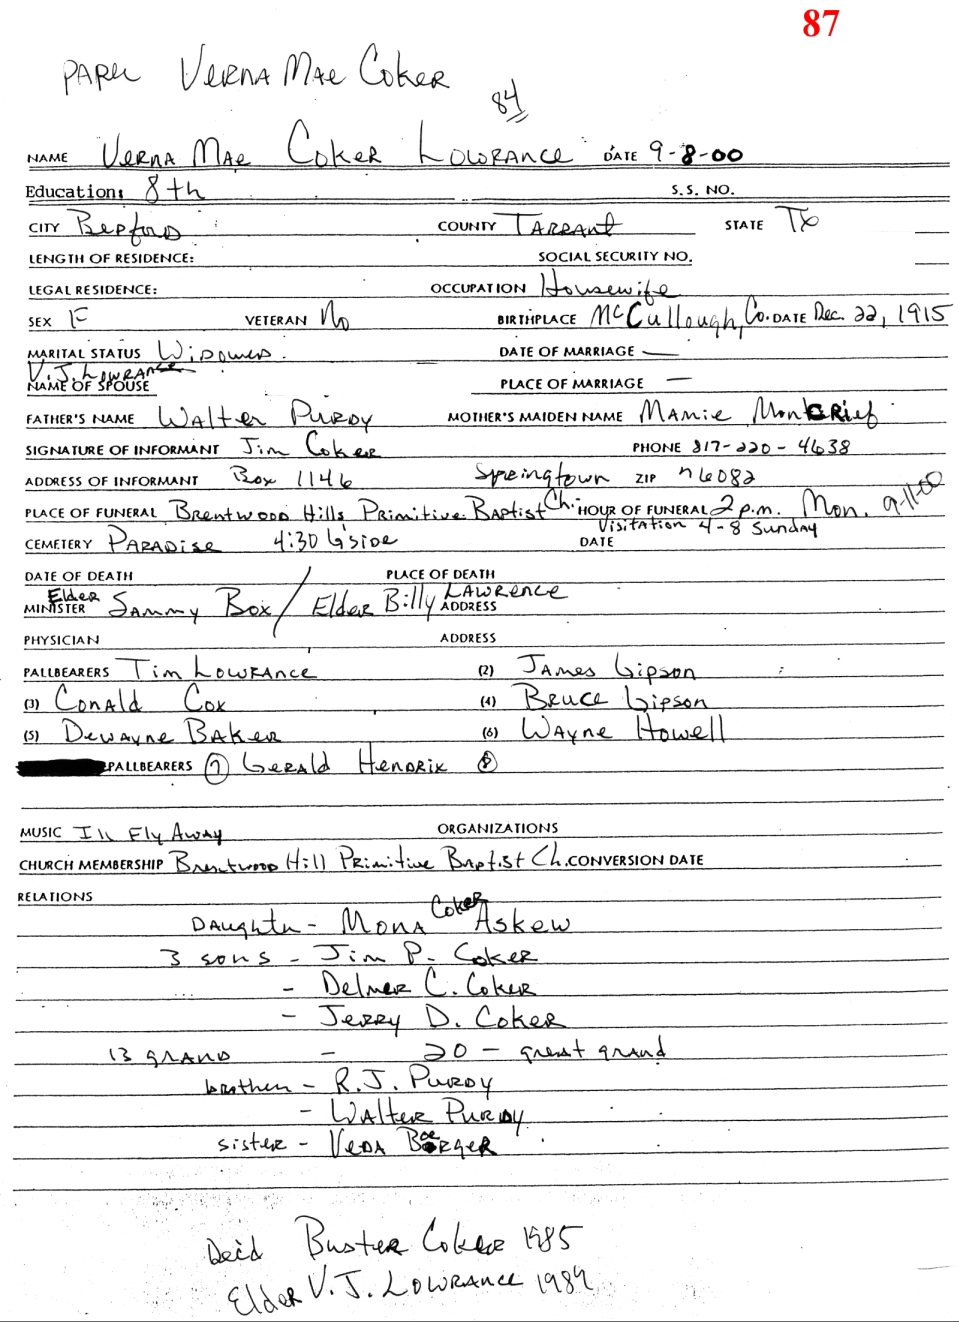 87
PAPER VERNA MAE COKER
84
NAME VERNA MAE COKER LOWRANCE DATE 9-8-00
Education: 8th S.S. NO.
CITY BEDFORD COUNTY TARRANT STATE TX
LENGTH OF RESIDENCE: SOCIAL SECURITY NO.
LEGAL RESIDENCE: OCCUPATION Housewife
SEX F VETERAN No BIRTHPLACE McCullough, Co. DATE Dec. 22, 1915
MARITAL STATUS WIDOWED. DATE OF MARRIAGE —
V.J. LOWRANCE
NAME OF SPOUSE PLACE OF MARRIAGE —
FATHER'S NAME Walter PURDY MOTHER'S MAIDEN NAME MAMIE MONCRIEF
SIGNATURE OF INFORMANT Jim COKER PHONE 817-220-4638
ADDRESS OF INFORMANT Box 1146 Springtown ZIP 76082
PLACE OF FUNERAL Brentwood Hills Primitive Baptist Ch. HOUR OF FUNERAL 2 p.m. Mon. 9-11-00
Visitation 4-8 Sunday
CEMETERY PARADISE 4:30 Gside DATE
DATE OF DEATH PLACE OF DEATH
MINISTER Elder Sammy Box / Elder Billy LAWRENCE ADDRESS
PHYSICIAN ADDRESS
PALLBEARERS Tim LOWRANCE (2) JAMES Gipson
(3) CONALD COX (4) BRUCE Gipson
(5) Dewayne BAKER (6) WAYNE Howell
PALLBEARERS 7 GERALD HENDRIX 8
MUSIC I'll Fly Away ORGANIZATIONS
CHURCH MEMBERSHIP Brentwood Hill Primitive Baptist Ch. CONVERSION DATE
RELATIONS
DAUGHTER - MONA COKER ASKEW
3 sons - Jim P. COKER
- Delmer C. COKER
- JERRY D. COKER
13 GRAND - 20 - great grand
brothers - R.J. PURDY
- WALTER PURDY
sister - VEDA BOERGER
Dec'd Buster COKER 1985
Elder V.J. LOWRANCE 1989